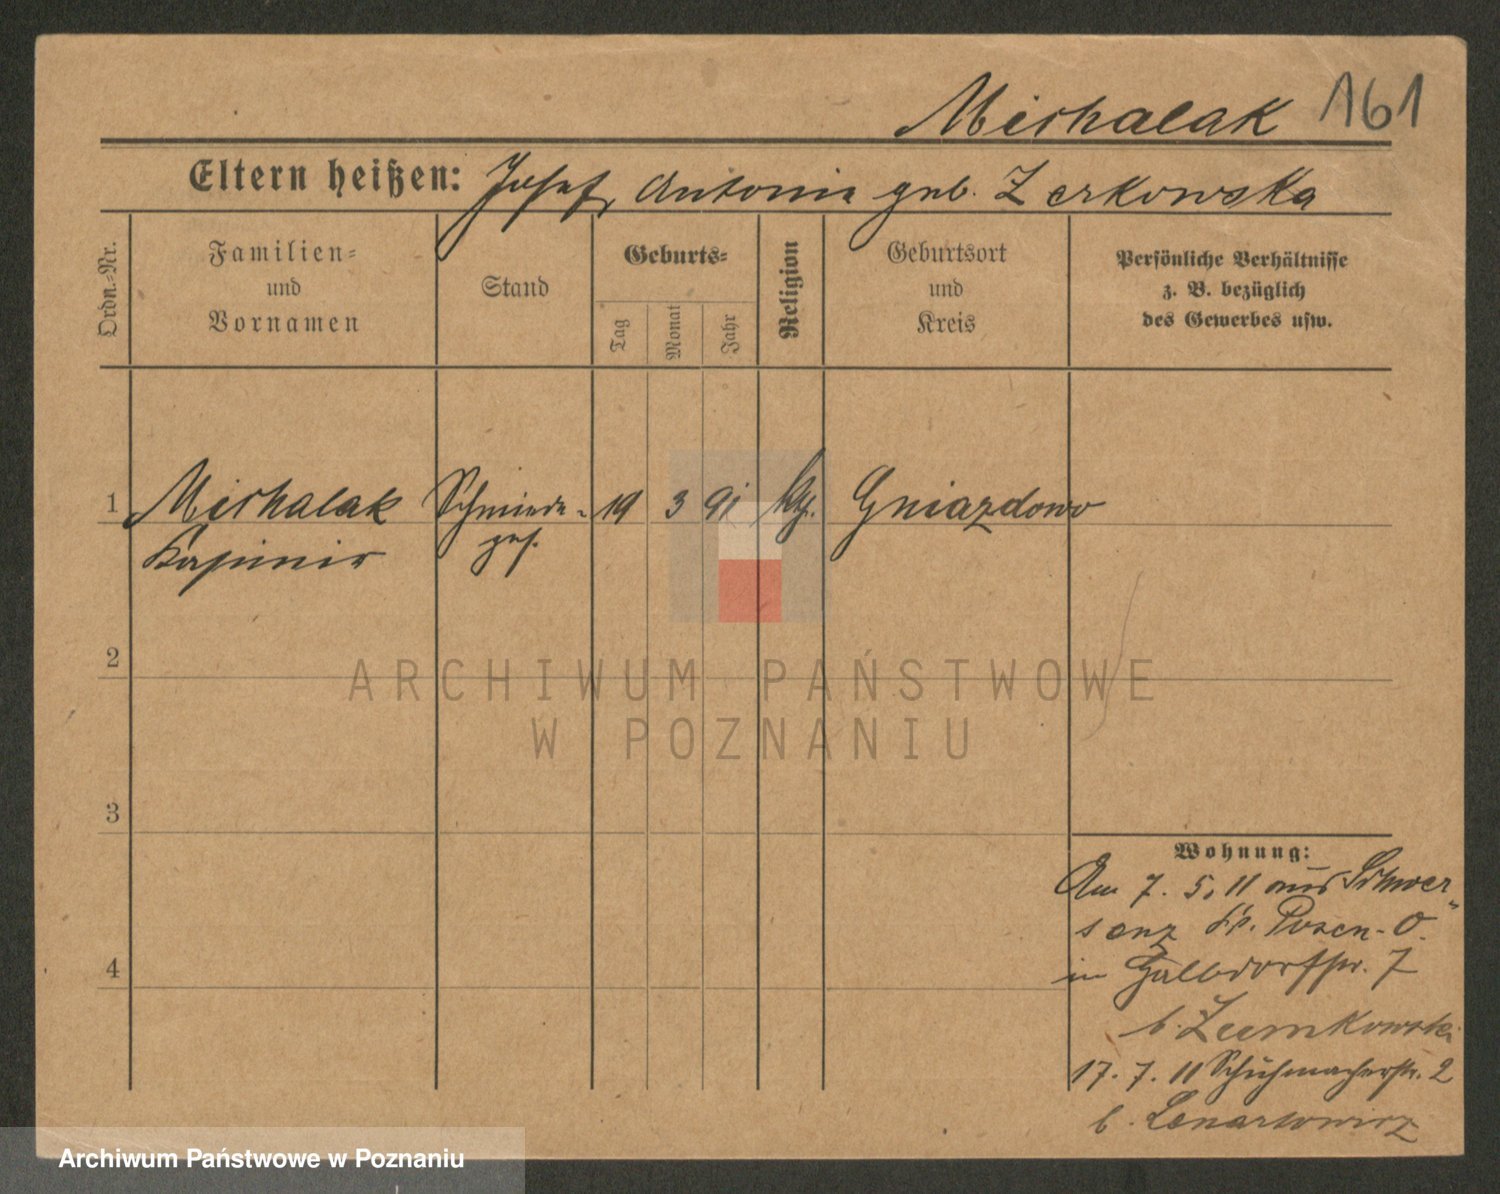 Michalak 161
Eltern heißen: Josef, Antonie geb. Zerkowska
Ordn.-Nr.
Familien-
und
Vornamen
Stand
Geburts-
Tag
Monat
Jahr
Religion
Geburtsort
und
Kreis
Persönliche Verhältnisse
z. B. bezüglich
des Gewerbes usw.
1 Michalak Schmiede- 19 3 91 kth. Gniazdowo
Kasimir ges.
2
ARCHIWUM PAŃSTWOWE
W POZNANIU
3
4
Wohnung:
Am 7. 5. 11 aus Schwer-
senz Kr. Posen-O.
in Halbdorfstr. 7
b. Ziemkowski
17. 7. 11 Schuhmacherstr. 2
b. Lenartowicz
Archiwum Państwowe w Poznaniu